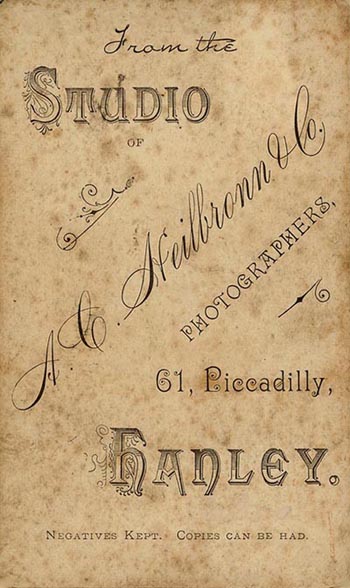 From the
STUDIO
OF
A. C. Heilbronn & Co.
PHOTOGRAPHERS,
61, Piccadilly,
HANLEY.
NEGATIVES KEPT. COPIES CAN BE HAD.